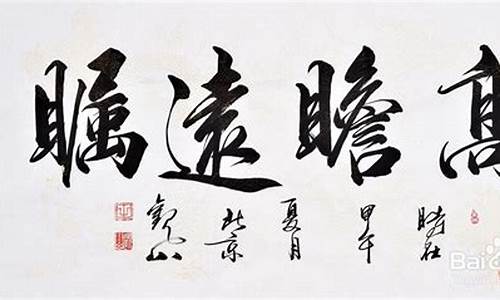 高瞻遠瞩
時在
甲午
夏月
北京
Bai